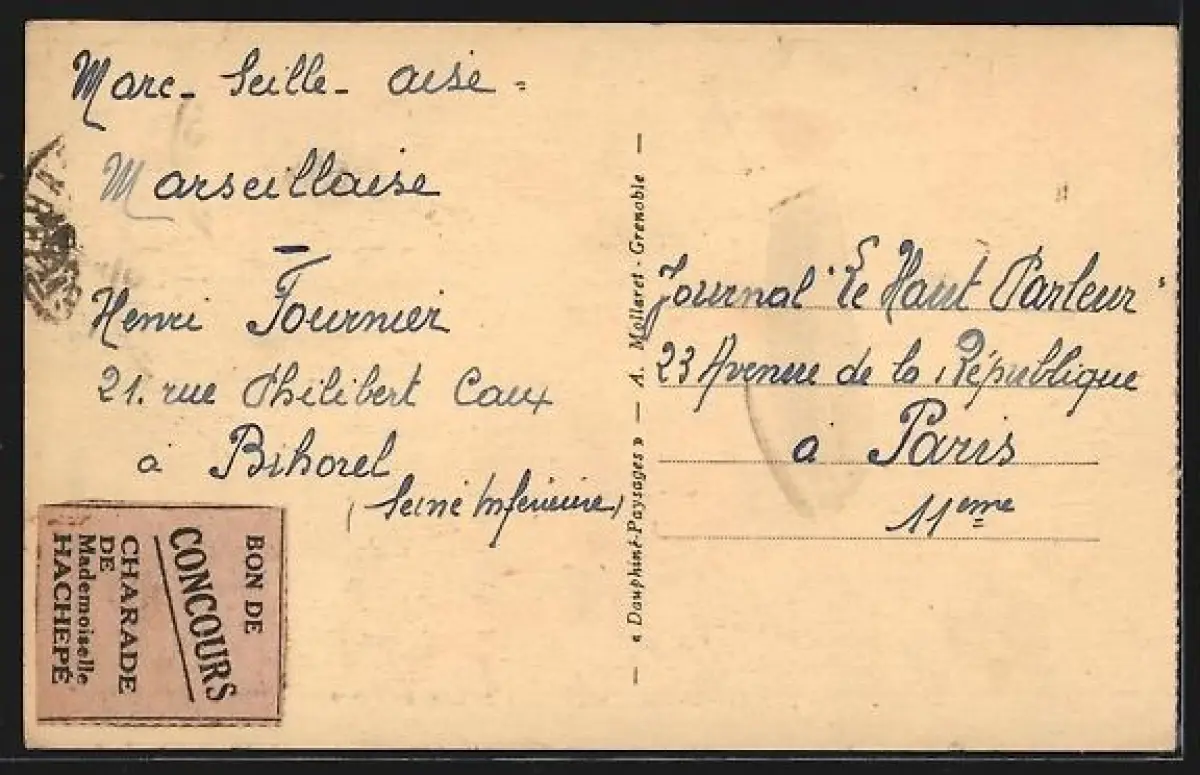 Marc- Seille- aise =
Marseillaise
Henri Fournier
21. rue Philibert Caux
à Bihorel
(Seine Inférieure)
BON DE
CONCOURS
CHARADE
DE
Mademoiselle
HACHEPÉ
— « Dauphiné-Paysages » — A. Mollaret - Grenoble —
Journal "Le Haut Parleur"
23 Avenue de la République
à Paris
11eme